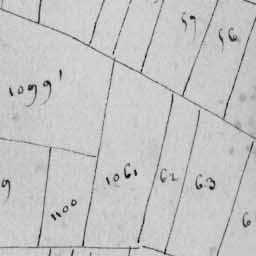 57
56
1099'
1061
62
63
9
1100
6